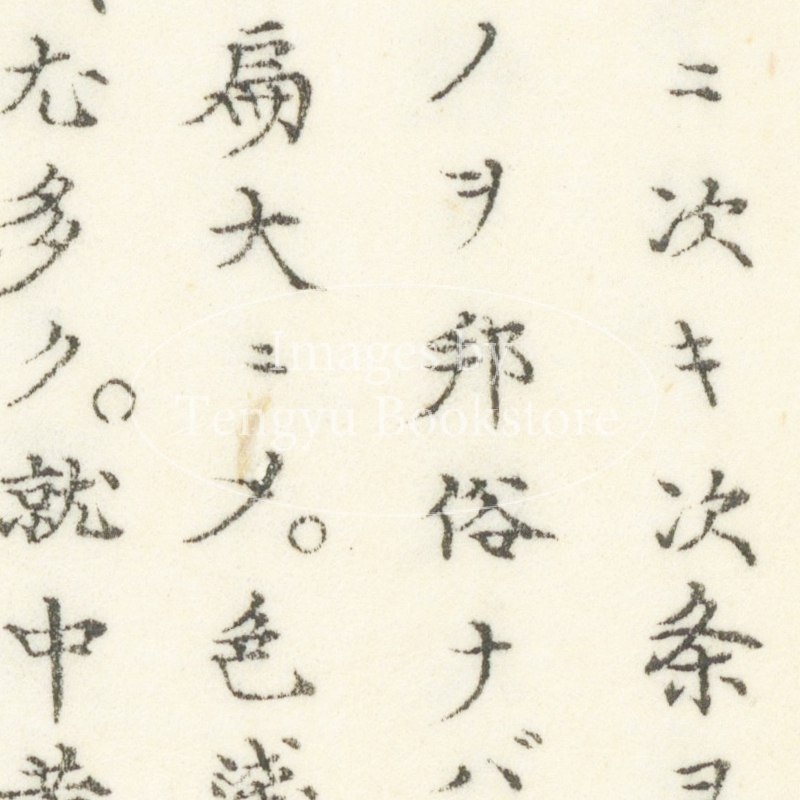 ニ次キ次条ヲ
ノヲ邦俗ナバ
扁大ニメ。色
尤多ク。就中
Images by
Tengyu Bookstore